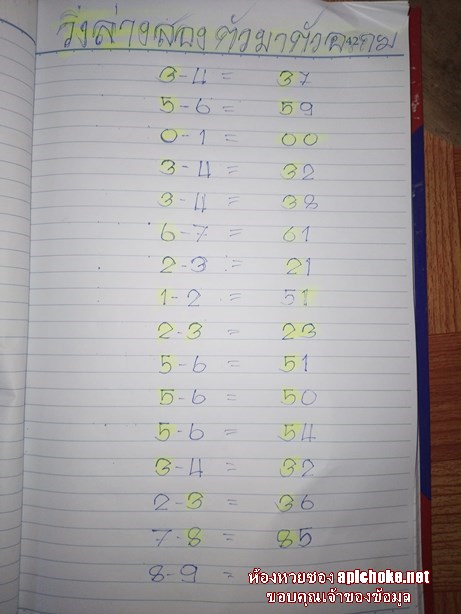 วิ่งล่างสองตัวมาตัว
3-4 = 37
5-6 = 59
0-1 = 00
3-4 = 32
3-4 = 38
6-7 = 61
2-3 = 21
1-2 = 51
2-3 = 23
5-6 = 51
5-6 = 50
5-6 = 54
3-4 = 32
2-3 = 36
7-8 = 85
8-9 =
ห้องหวยซอง aplchoke.net
ขอบคุณเจ้าของข้อมูล